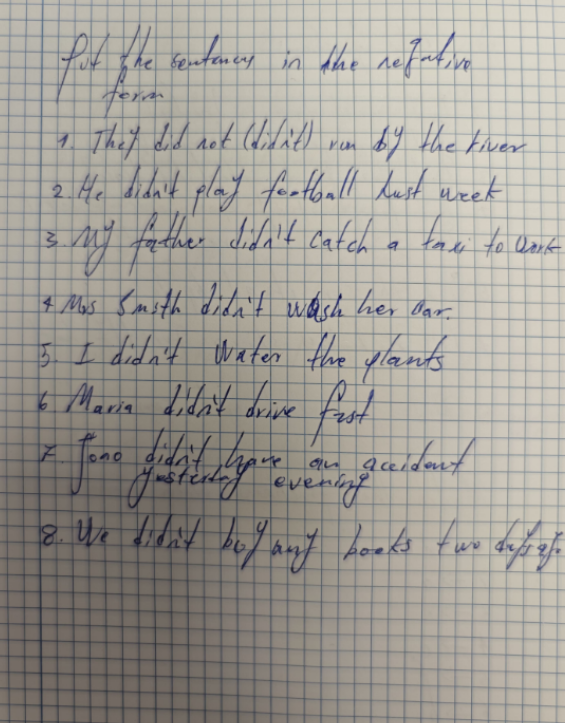 Put the sentences in the negative
form
1. They did not (didn't) run by the river
2. He didn't play football last week
3. My father didn't catch a taxi to work
4 Mrs Smith didn't wash her car.
5. I didn't water the plants
6 Maria didn't drive fast
7. Jono didn't have an accident
yesterday evening
8. We didn't boy any books two days ago.